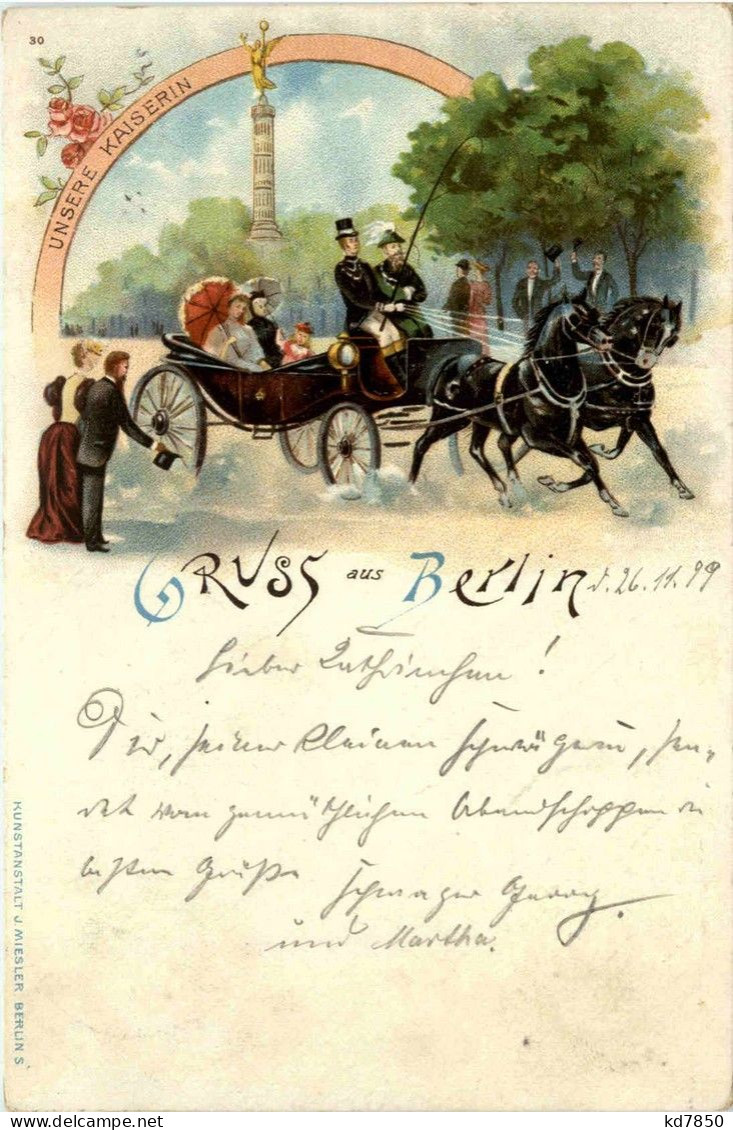 30
UNSERE KAISERIN
GRUSS aus Berlin d. 26.11.99
Lieber Kathrinchen!
Dir, seiner kleinen Schwägerin, sen-
det vom gemüthlichen Abendschoppen die
besten Grüße Schwager Georg.
und Martha.
KUNSTANSTALT J. MIESLER BERLIN S
kd7850